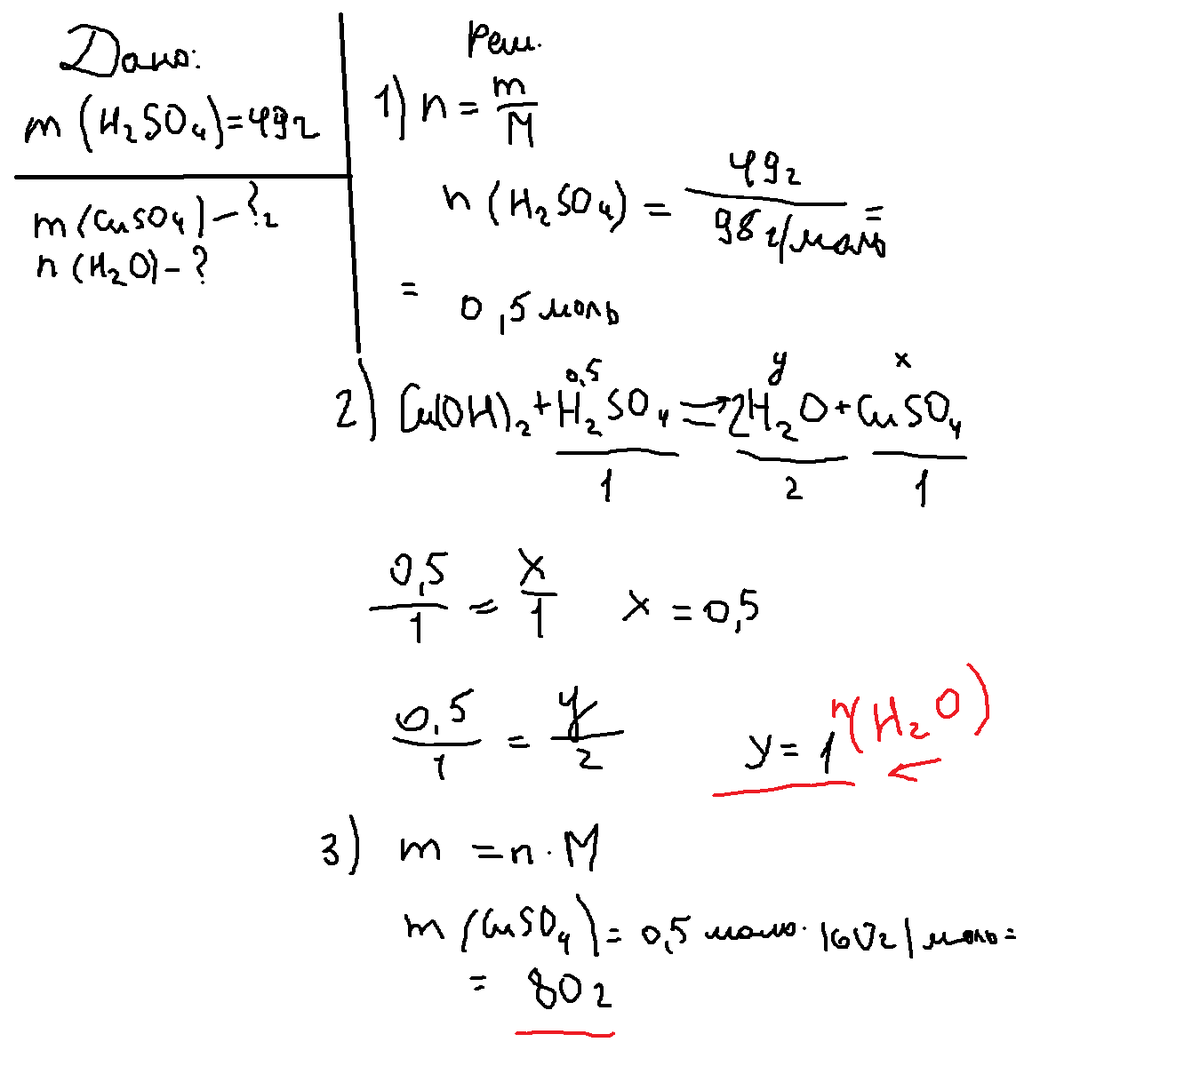 Дано:
m (H₂SO₄)=49г
m (CuSO₄) - ?г
n (H₂O) - ?
Реш.
1) n = m/M
n (H₂SO₄) = 49г / 98г/моль =
= 0,5 моль
0,5 y x
2) Cu(OH)₂ + H₂SO₄ => 2H₂O + CuSO₄
1 2 1
0,5/1 = x/1 x = 0,5
0,5/1 = y/2 y = 1 n(H₂O) ←
3) m = n · M
m (CuSO₄) = 0,5 моль · 160г/моль =
= 80г